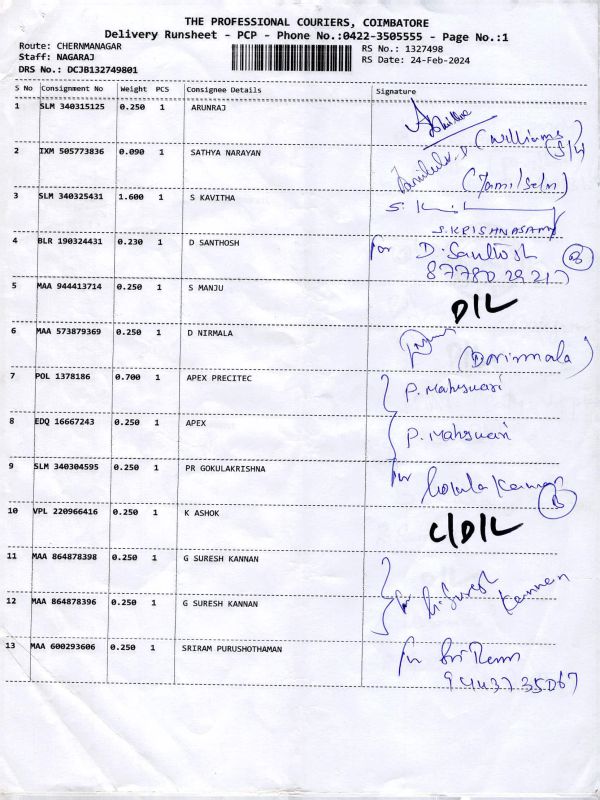 THE PROFESSIONAL COURIERS, COIMBATORE
Delivery Runsheet - PCP - Phone No.:0422-3505555 - Page No.:1
Route: CHERNMANAGAR
RS No.: 1327498
Staff: NAGARAJ
RS Date: 24-Feb-2024
DRS No.: DCJB132749801
S No Consignment No Weight PCS Consignee Details Signature
1 SLM 340315125 0.250 1 ARUNRAJ
(Williams)
2 IXM 505773836 0.090 1 SATHYA NARAYAN
(Tamilselm)
3 SLM 340325431 1.600 1 S KAVITHA
S.KRISHNASAMY
4 BLR 190324431 0.230 1 D SANTHOSH for D. Santhosh
5 MAA 944413714 0.250 1 S MANJU D/L
6 MAA 573879369 0.250 1 D NIRMALA (Dorirmala)
7 POL 1378186 0.700 1 APEX PRECITEC P. Maheswari
8 EDQ 16667243 0.250 1 APEX P. Maheswari
9 SLM 340304595 0.250 1 PR GOKULAKRISHNA for
10 VPL 220966416 0.250 1 K ASHOK C/D/L
11 MAA 864878398 0.250 1 G SURESH KANNAN
for G. Suresh Kannan
12 MAA 864878396 0.250 1 G SURESH KANNAN
13 MAA 600293606 0.250 1 SRIRAM PURUSHOTHAMAN for Sri Ram
9443735067